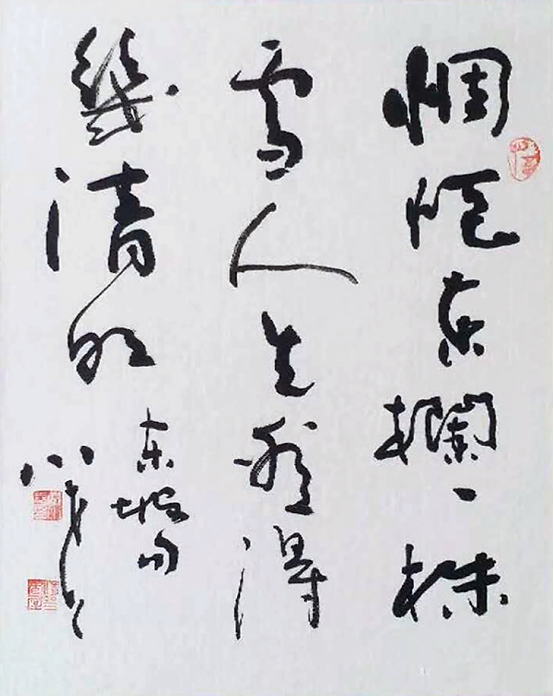 惆悵東欄一株
雪人生看得
幾清明
東坡句